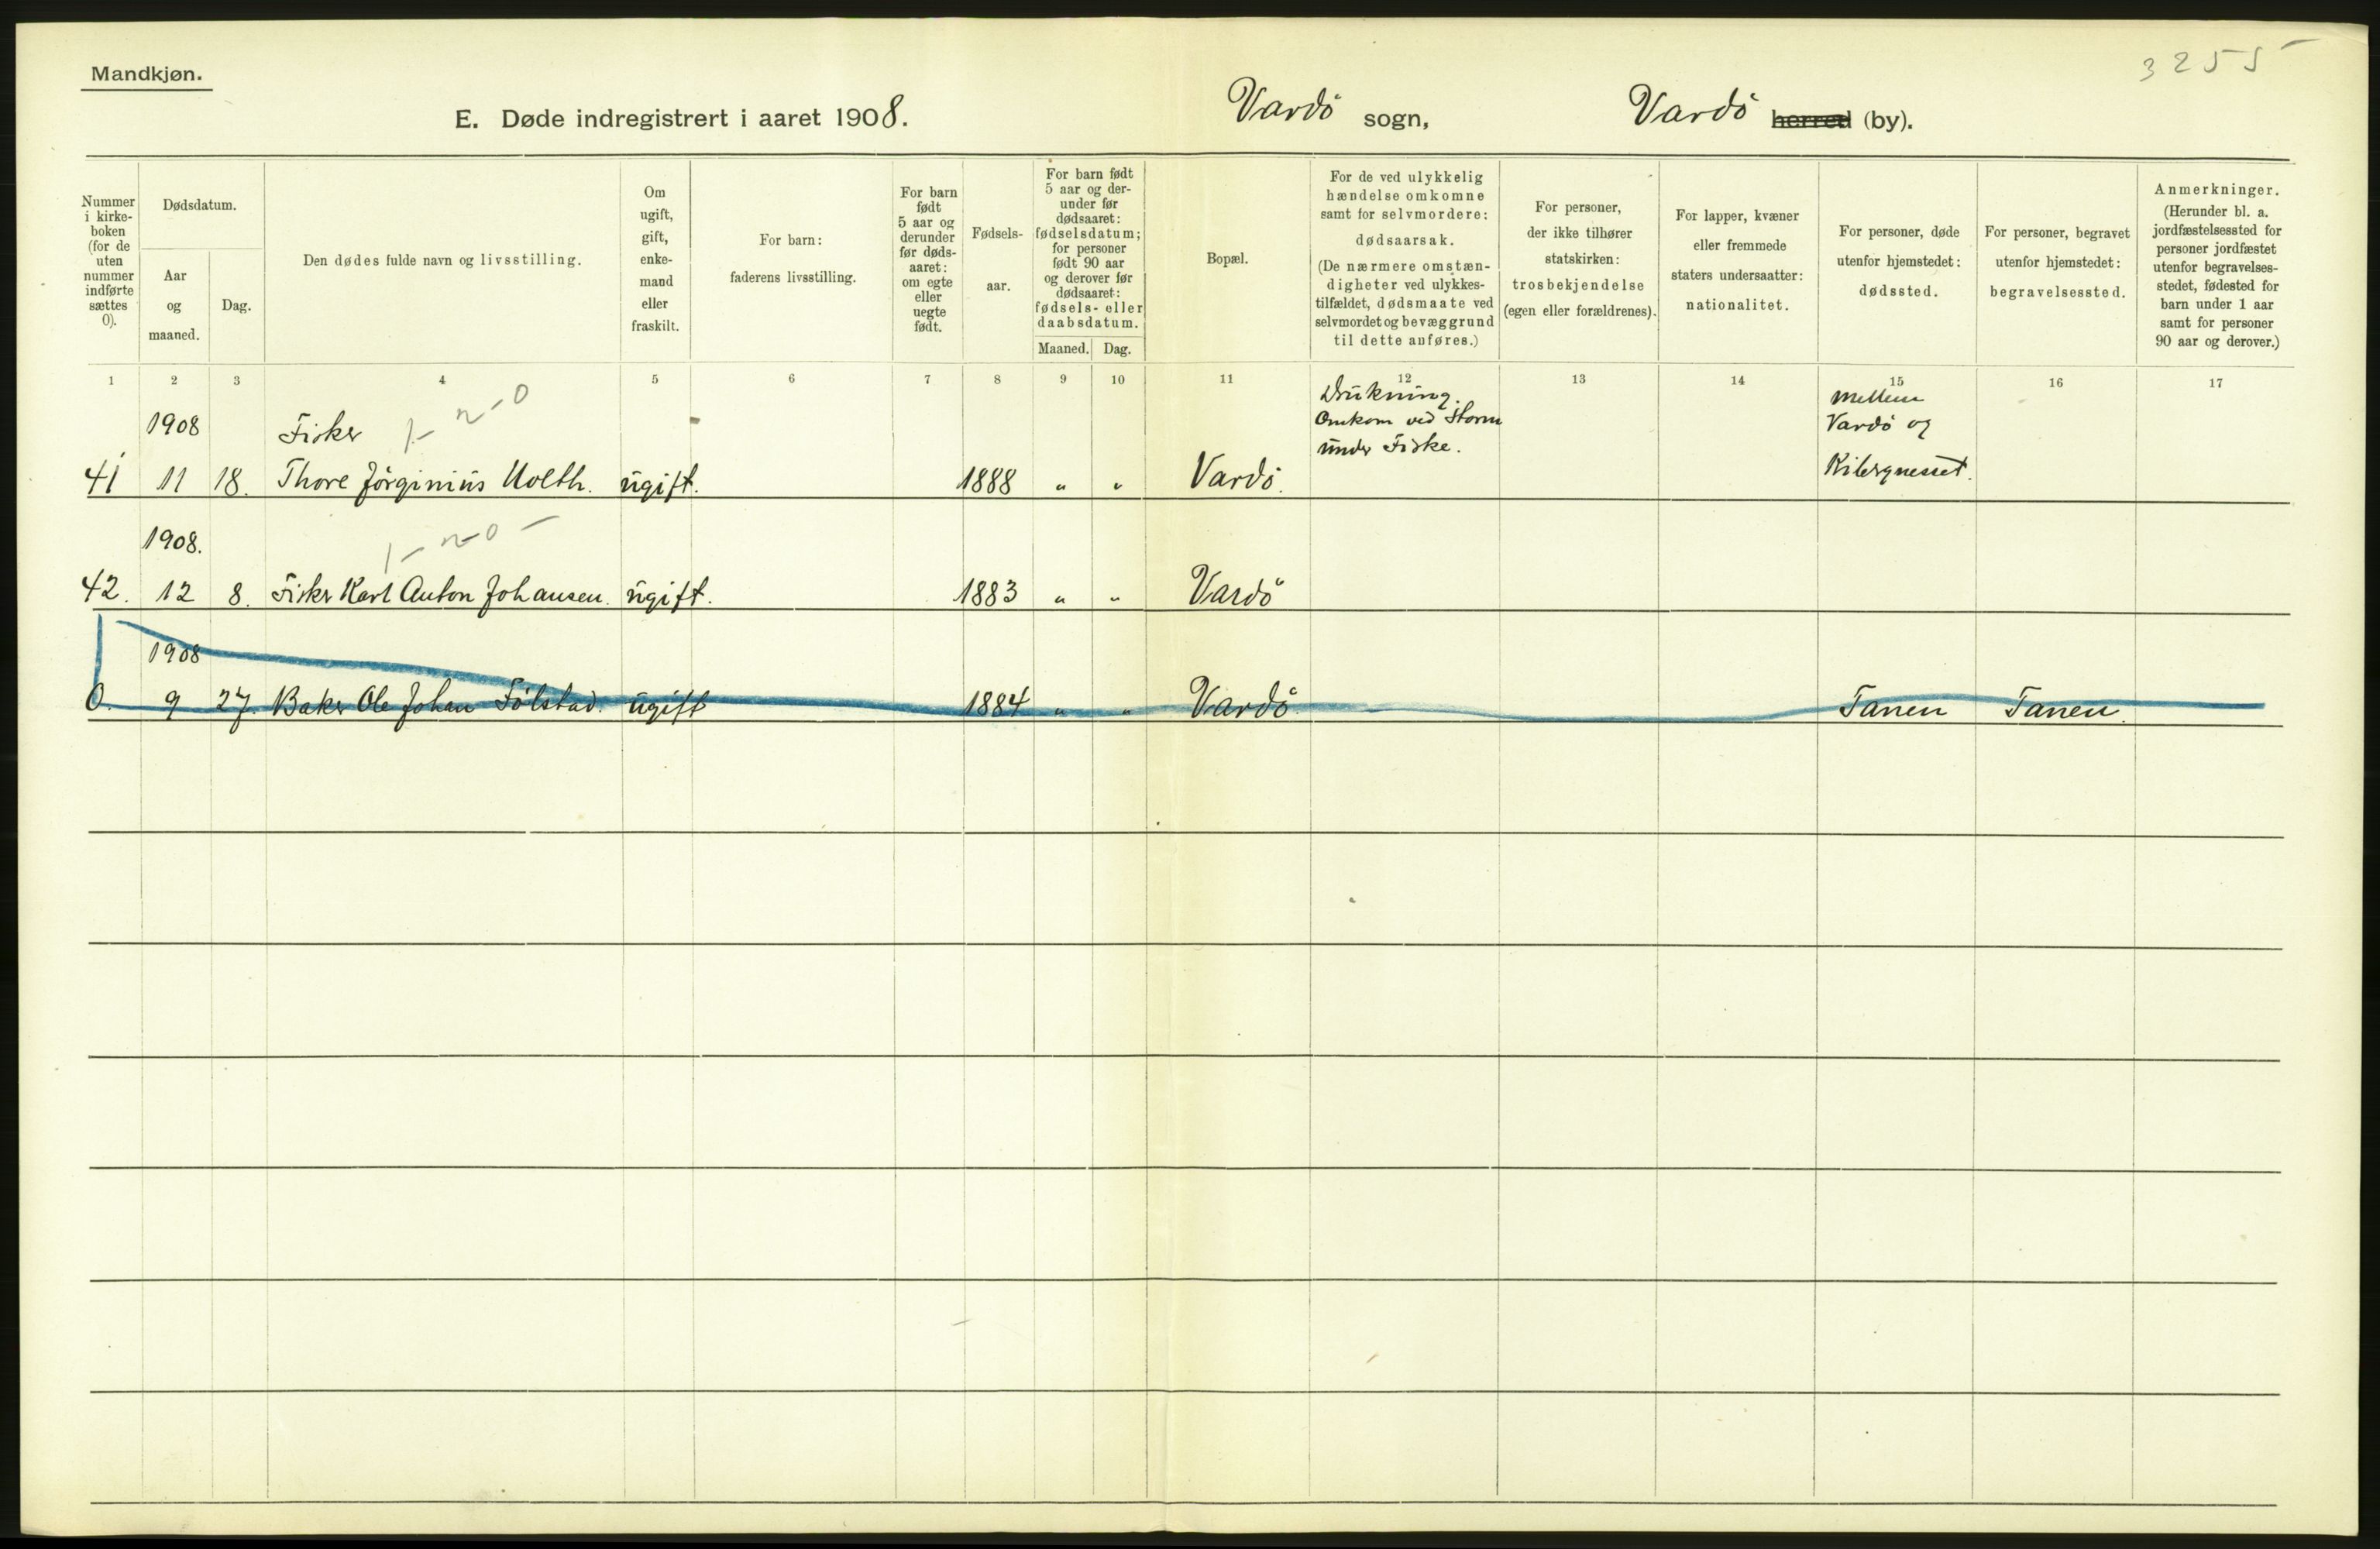 Mandkjøn.
3255
E. Døde indregistrert i aaret 1908.
Vardö sogn,
Vardö herred (by).
Nummer
i kirke-
boken
(for de
uten
nummer
indførte
sættes
0).
Dødsdatum.
Aar
og
maaned.
Dag.
Den dødes fulde navn og livsstilling.
Om
ugift,
gift,
enke-
mand
eller
fraskilt.
For barn:
faderens livsstilling.
For barn
født
5 aar og
derunder
før døds-
aaret:
om egte
eller
uegte
født.
Fødsels-
aar.
For barn født
5 aar og der-
under før
dødsaaret:
fødselsdatum;
for personer
født 90 aar
og derover før
dødsaaret:
fødsels- eller
daabsdatum.
Maaned.
Dag.
Bopæl.
For de ved ulykkelig
hændelse omkomne
samt for selvmordere:
dødsaarsak.
(De nærmere omstæn-
digheter ved ulykkes-
tilfældet, dødsmaate ved
selvmordet og bevæggrund
til dette anføres.)
For personer,
der ikke tilhører
statskirken:
trosbekjendelse
(egen eller forældrenes).
For lapper, kvæner
eller fremmede
staters undersaatter:
nationalitet.
For personer, døde
utenfor hjemstedet:
dødssted.
For personer, begravet
utenfor hjemstedet:
begravelsessted.
Anmerkninger.
(Herunder bl. a.
jordfæstelsessted for
personer jordfæstet
utenfor begravelses-
stedet, fødested for
barn under 1 aar
samt for personer
90 aar og derover.)
1 2 3 4 5 6 7 8 9 10 11 12 13 14 15 16 17
1908 Fisker 1-n-0
Drukning.
Omkom ved Storm
under Fiske.
Mellem
Vardö og
Kibergnesset.
41 11 18. Thore Jörginius ugift. 1888 " " Vardö.
1908. 1-n-0-
42. 12 8. Fisker Karl Anton Johansen. ugift. 1883 " " Vardö
1908
0. 9 27. Baker Ole Johan Fölstad. ugift 1884 " " Vardö. Tanen Tanen.